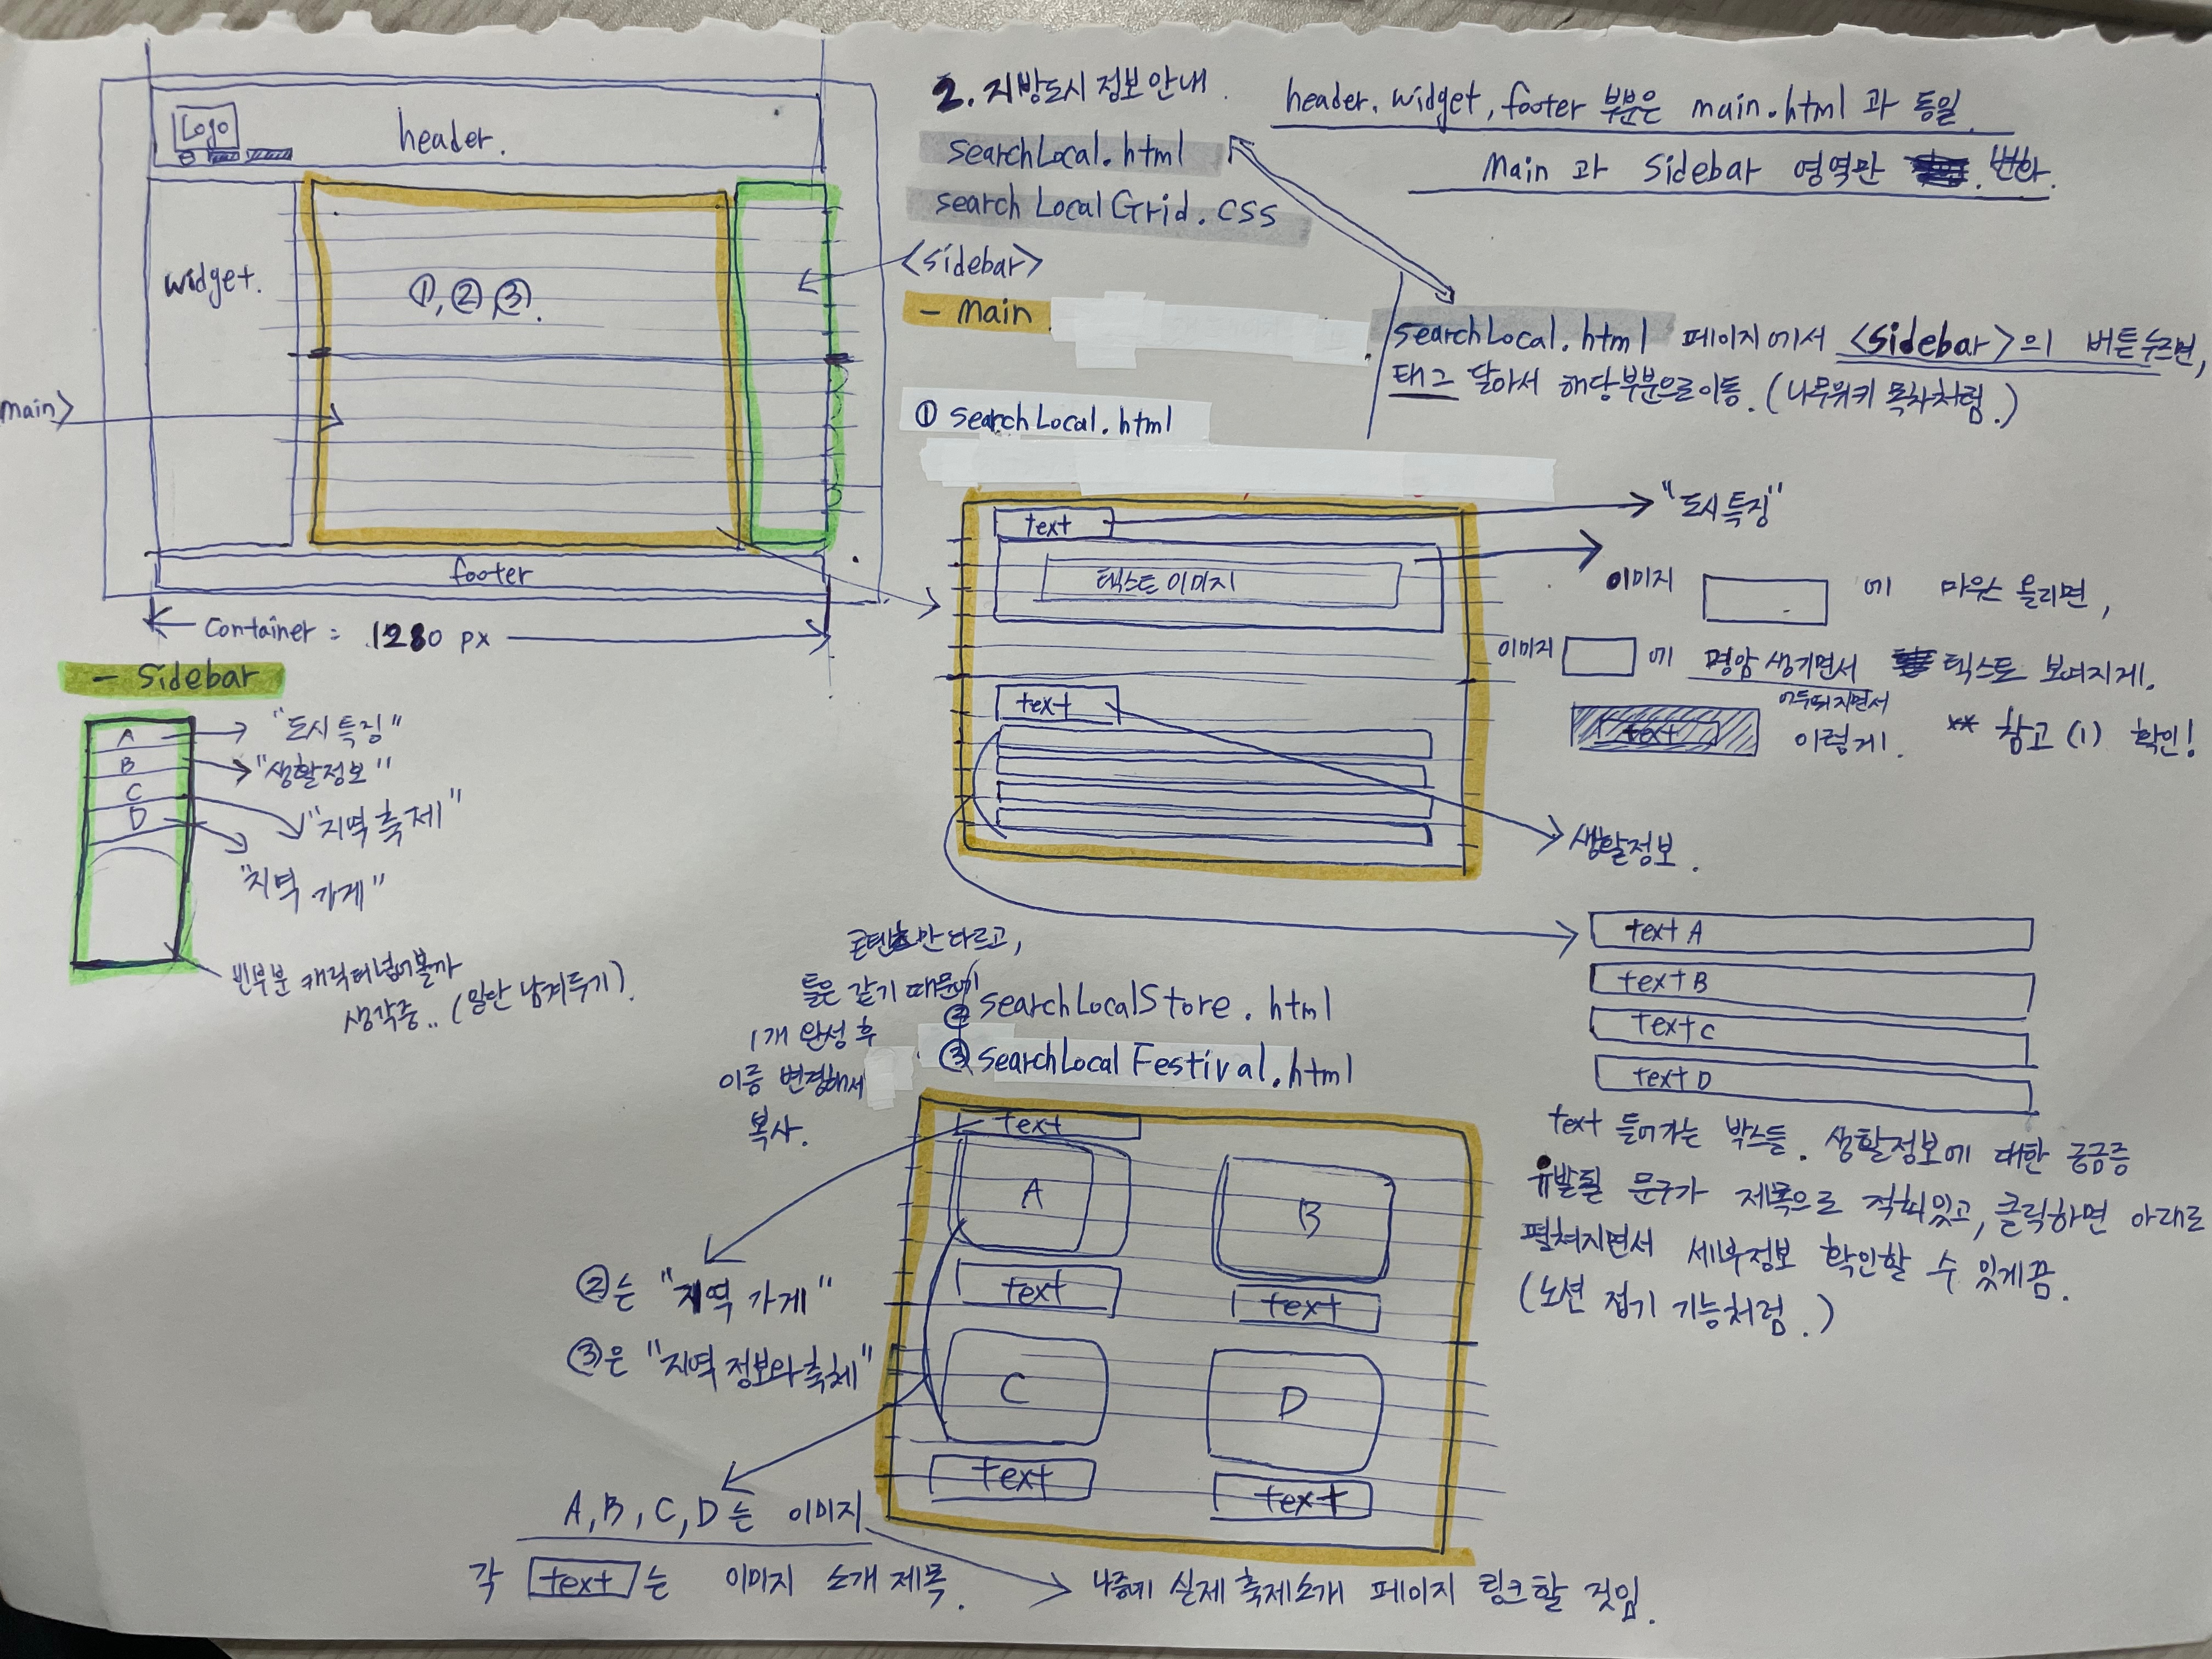 Logo
header.
widget.
①, ② ③.
main>
footer
Container = 1280 px
2. 지방도시 정보안내.
searchLocal.html
searchLocalGrid.css
<sidebar>
- Main
header. widget, footer 부분은 main.html 과 동일.
Main 과 Sidebar 영역만 변화.
searchLocal.html 페이지에서 <sidebar>의 버튼 누르면,
태그 달아서 해당부분으로 이동. (나무위키 목차처럼.)
① searchLocal.html
text
텍스트 이미지
text
"도시 특징"
이미지 에 마우스 올리면,
이미지 에 명암 생기면서 텍스트 보여지게.
어두워지면서
text 이렇게. ** 참고 (1) 확인!
생활정보.
- Sidebar
A
B
C
D
"도시 특징"
"생활정보"
"지역 축제"
"지역 가게"
빈부분 캐릭터 넣어볼까
생각중.. (일단 남겨두기).
text A
text B
text C
text D
text 들어가는 박스들. 생활정보에 대한 궁금증
유발될 문구가 제목으로 적혀있고, 클릭하면 아래로
펼쳐지면서 세부정보 확인할 수 있게끔.
(노션 접기 기능처럼.)
콘텐츠만 다르고,
틀은 같기 때문에
1개 완성 후
이름 변경해서
복사.
② searchLocalStore.html
③ searchLocal Festival.html
text
A
B
text
text
C
D
text
text
②는 "지역 가게"
③은 "지역 정보와 축제"
A, B, C, D는 이미지
각 text 는 이미지 소개 제목.
나중에 실제 축제소개 페이지 링크할 것임.